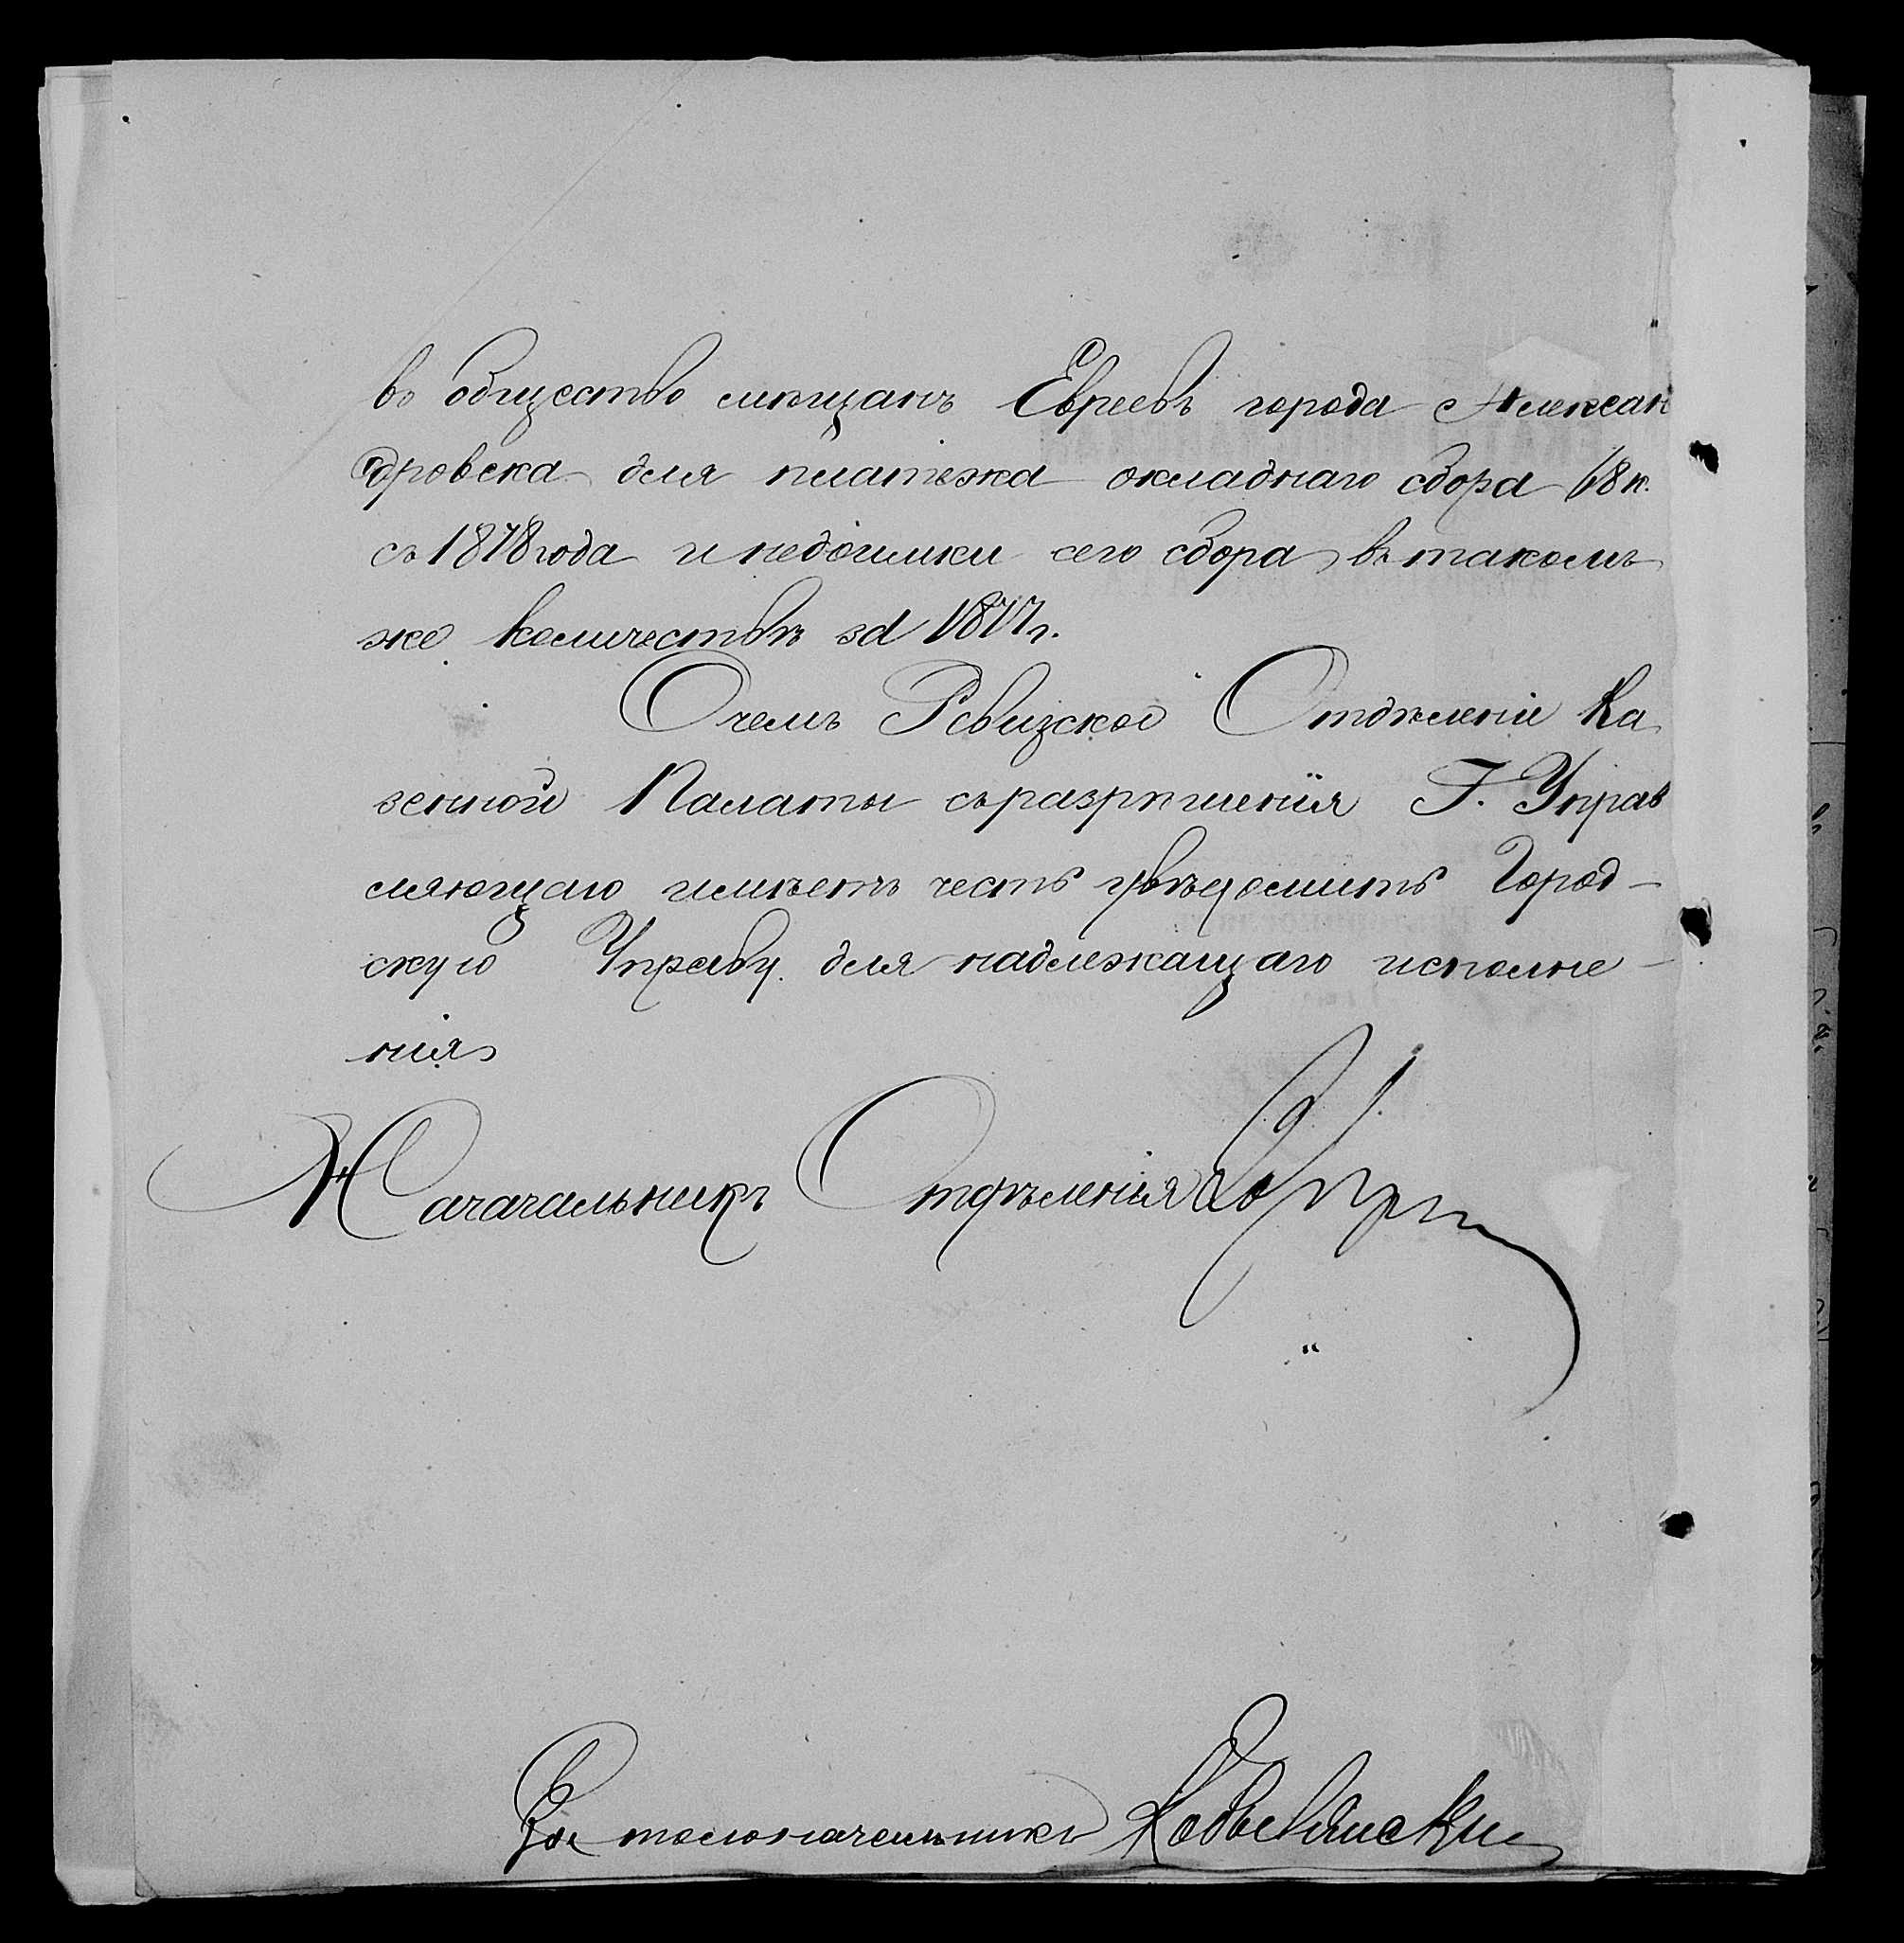 въ общество мѣщанъ Евреевъ города Алексан
дровска для платежа окладнаго сбора 68 к.
съ 1878 года и недоимки сего сбора въ такомъ
же количествѣ за 1877 г.
О чемъ Ревизское Отдѣленіе Ка
зенной Палаты съ разрѣшенія Г. Управ
ляющаго имѣетъ честь увѣдомить Город-
скую Управу для надлежащаго исполне-
нія
Начачальникъ Отдѣленія
За столоначальника